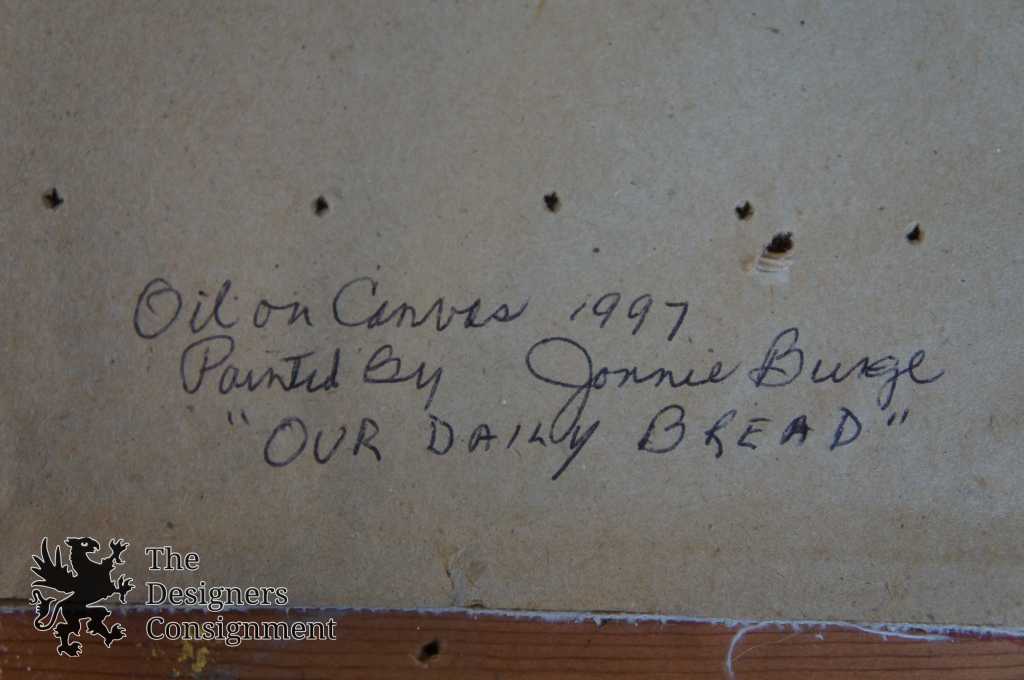 Oil on Canvas 1997
Painted By Jonnie Burge
"OUR DAILY BREAD"
The
Designers
Consignment